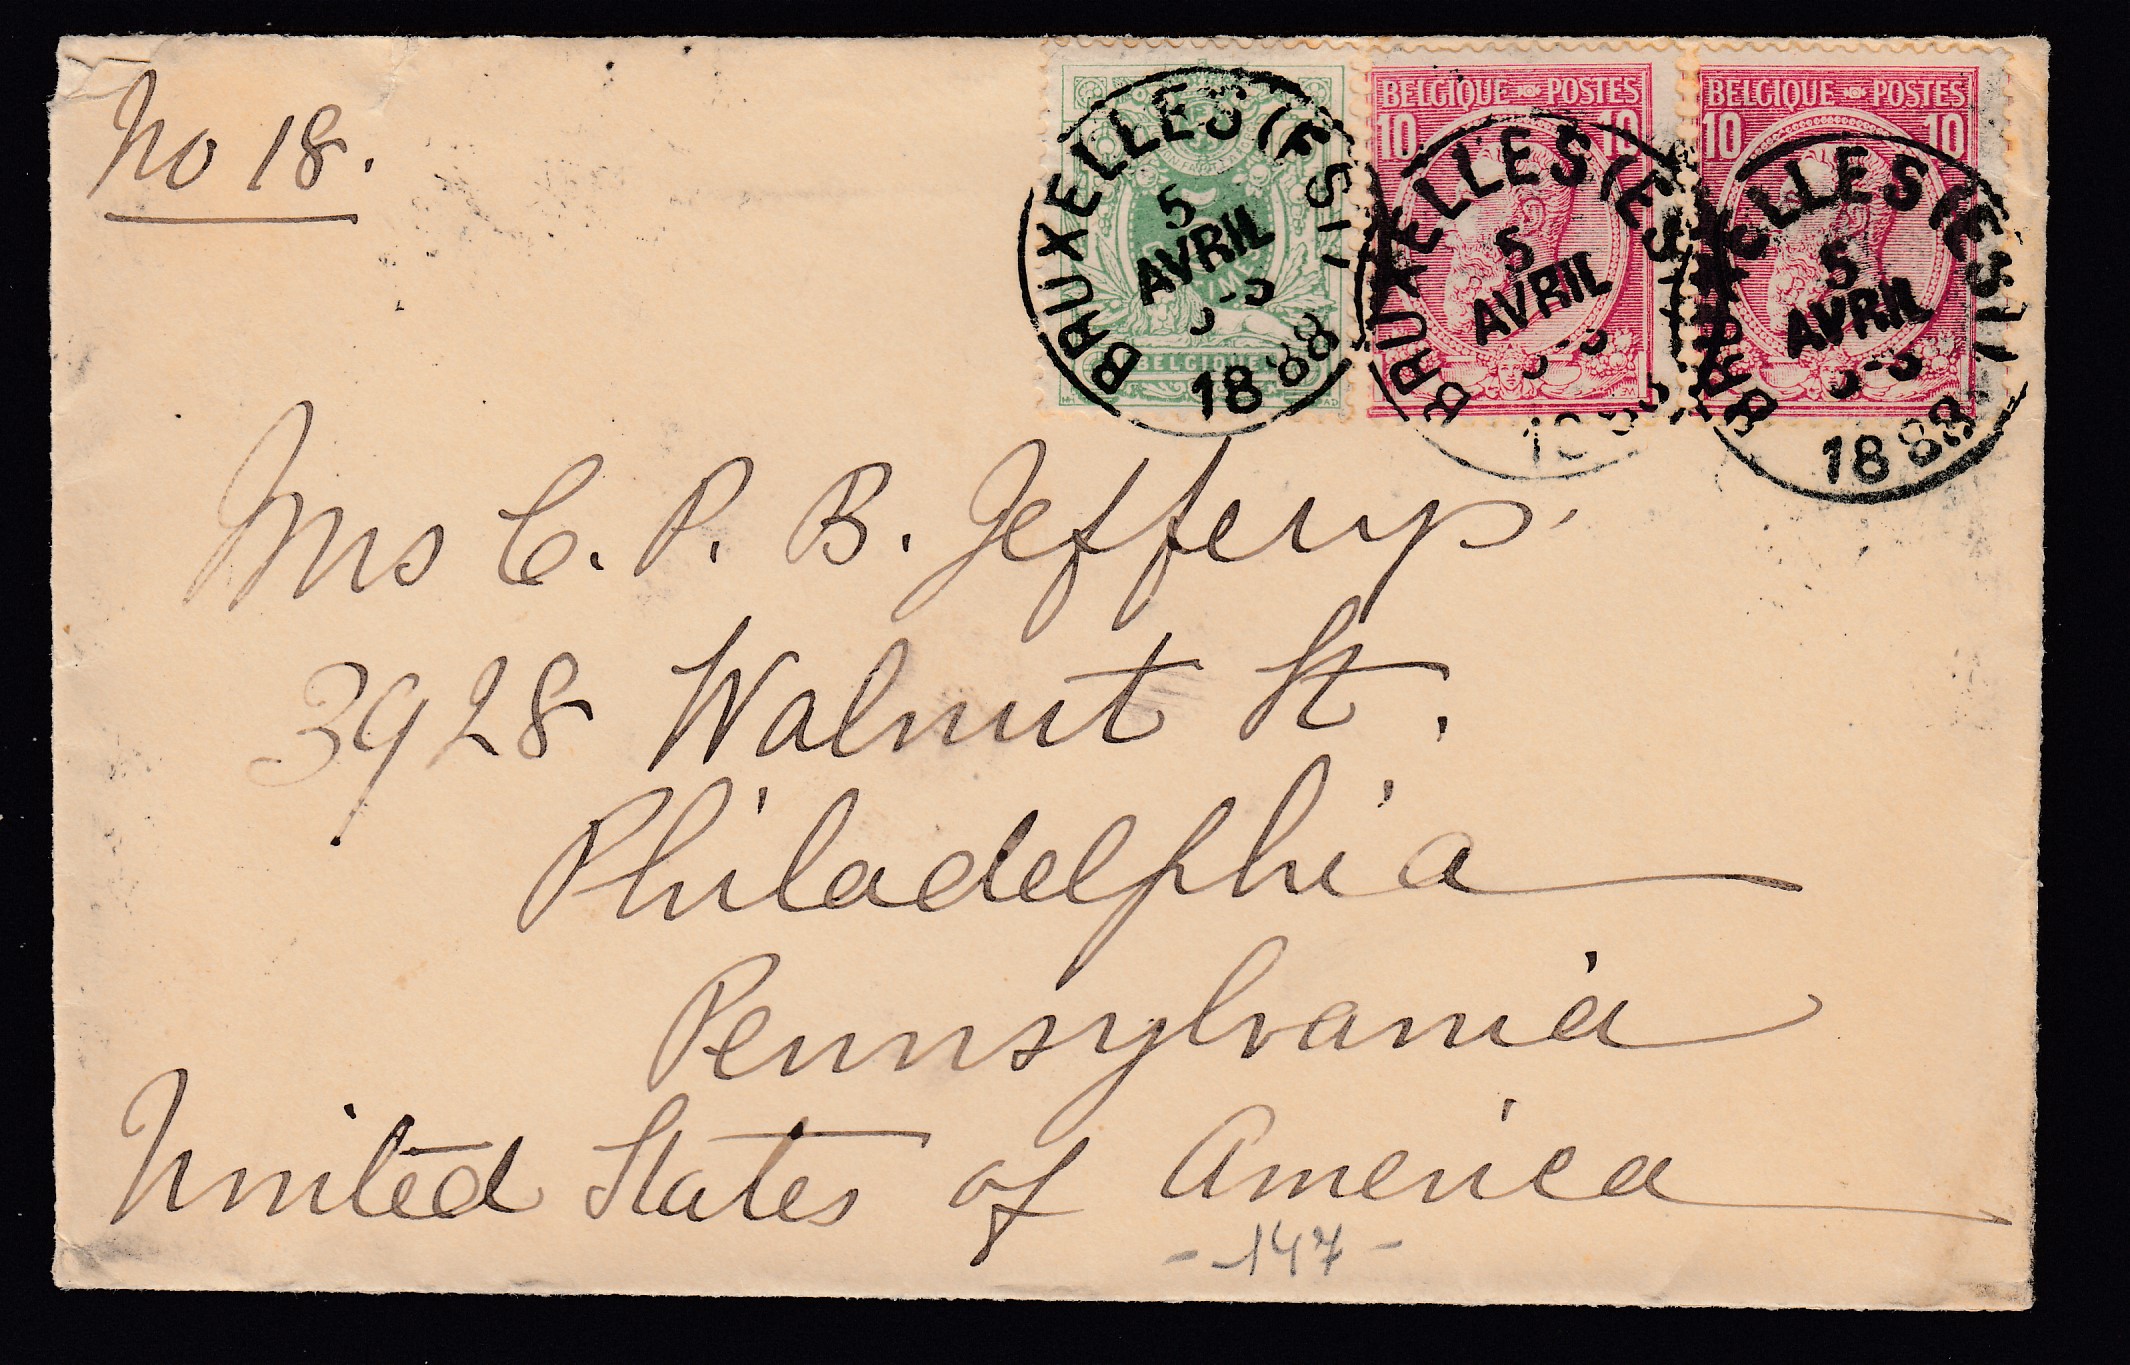 No 18.
BELGIQUE POSTES
10 10
BELGIQUE POSTES
10 10
BRUXELLES (EST)
5
AVRIL
1888
BELGIQUE
BRUXELLES (EST)
5
AVRIL
BRUXELLES (EST)
5
AVRIL
1888
Mrs C. P. B. Jefferys.
3928 Walnut St.
Philadelphia
Pennsylvania
United States of America
- 147 -